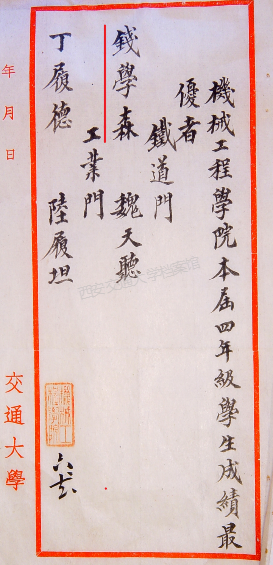 機械工程學院本屆四年級學生成績最
優者
鐵道門
錢學森 魏天聽
工業門
丁履德 陸履坦
年 月 日
交通大學
西安交通大学档案馆